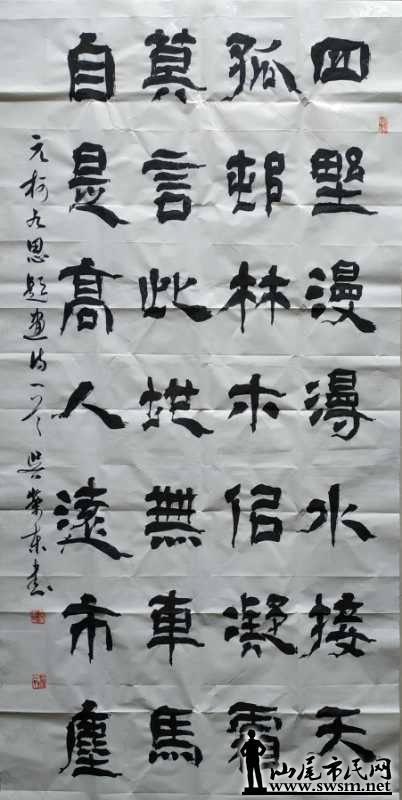 四野漫漫水接天
孤邨林木佀凝霜
莫言此地無車馬
自是高人遠市塵
元柯九思題畫詩一首 吳东书
汕尾市民网
www.swsm.net